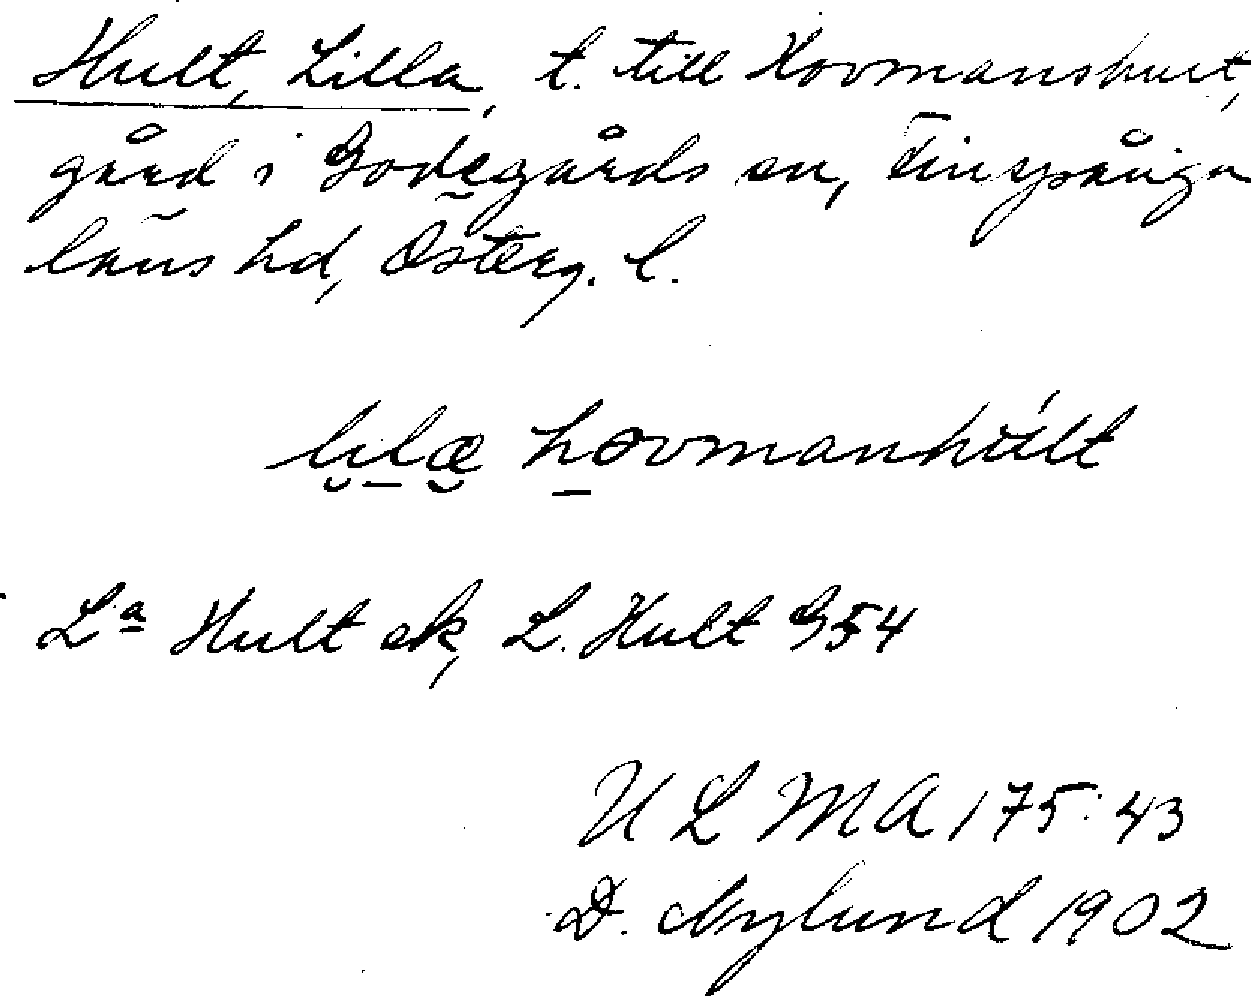 Hult, Lilla, t. till Hovmanshult,
gård i Godegårds sn, Finspånga
läns hd, Österg. l.
lịlæ hovmanhúlt
Lª Hult ek, L. Hult G54
ULMA 175:43
D. Nylund 1902